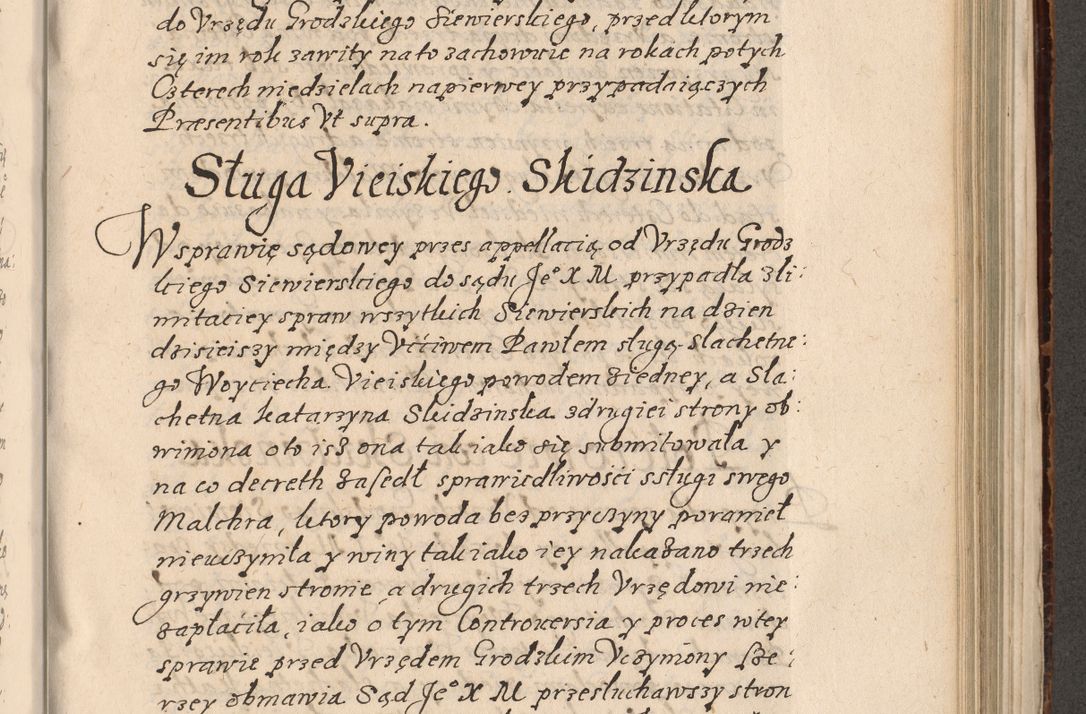 do Vrzędu Grodzkiego Siewierskiego, przed ktorym
się im rok zawity na to zachowuie na rokach potych
Czterech niedzielach napierwey przypadaiączych
Præsentibus Vt supra.
Sługa Vieiskiego. Skidzinska
W sprawię sądowey przes appellacią od Vrzędu Grodz
kiego Siewierskiego do sądu Jeº X M przypadła z li:
mitaciey spraw wszytkich Siewierskich na dzien
dzisieiszy między Vććiwem Pawłem sługą Slachetne:
go Woyciecha Vieiskiego powodem ziedney, a Sla:
chetna Katarzyna Skidzinska zdrugiei strony ob:
winiona o to isz ona tak iako się submitowała y
na co decreth zasedł sprawiedliwośći z sługi swego
Malchra, ktory powoda bes przyczyny poranieł
nieuczyniła y winy tak iako iey nakazano trzech
grzywien stronie, a drugich trzech Vrzędowi nie:
zapłaćiła, iako o tym Controuersia y proces wtey
sprawie przed Vrzędem Grodzkim Vczyniony sze:
rzey obmawia Sąd Jeº X M przesłuchawszy stron